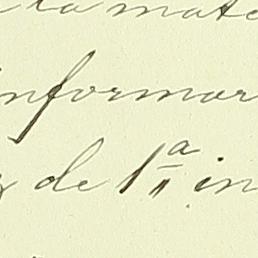 la mate
informar
y de 1ª in